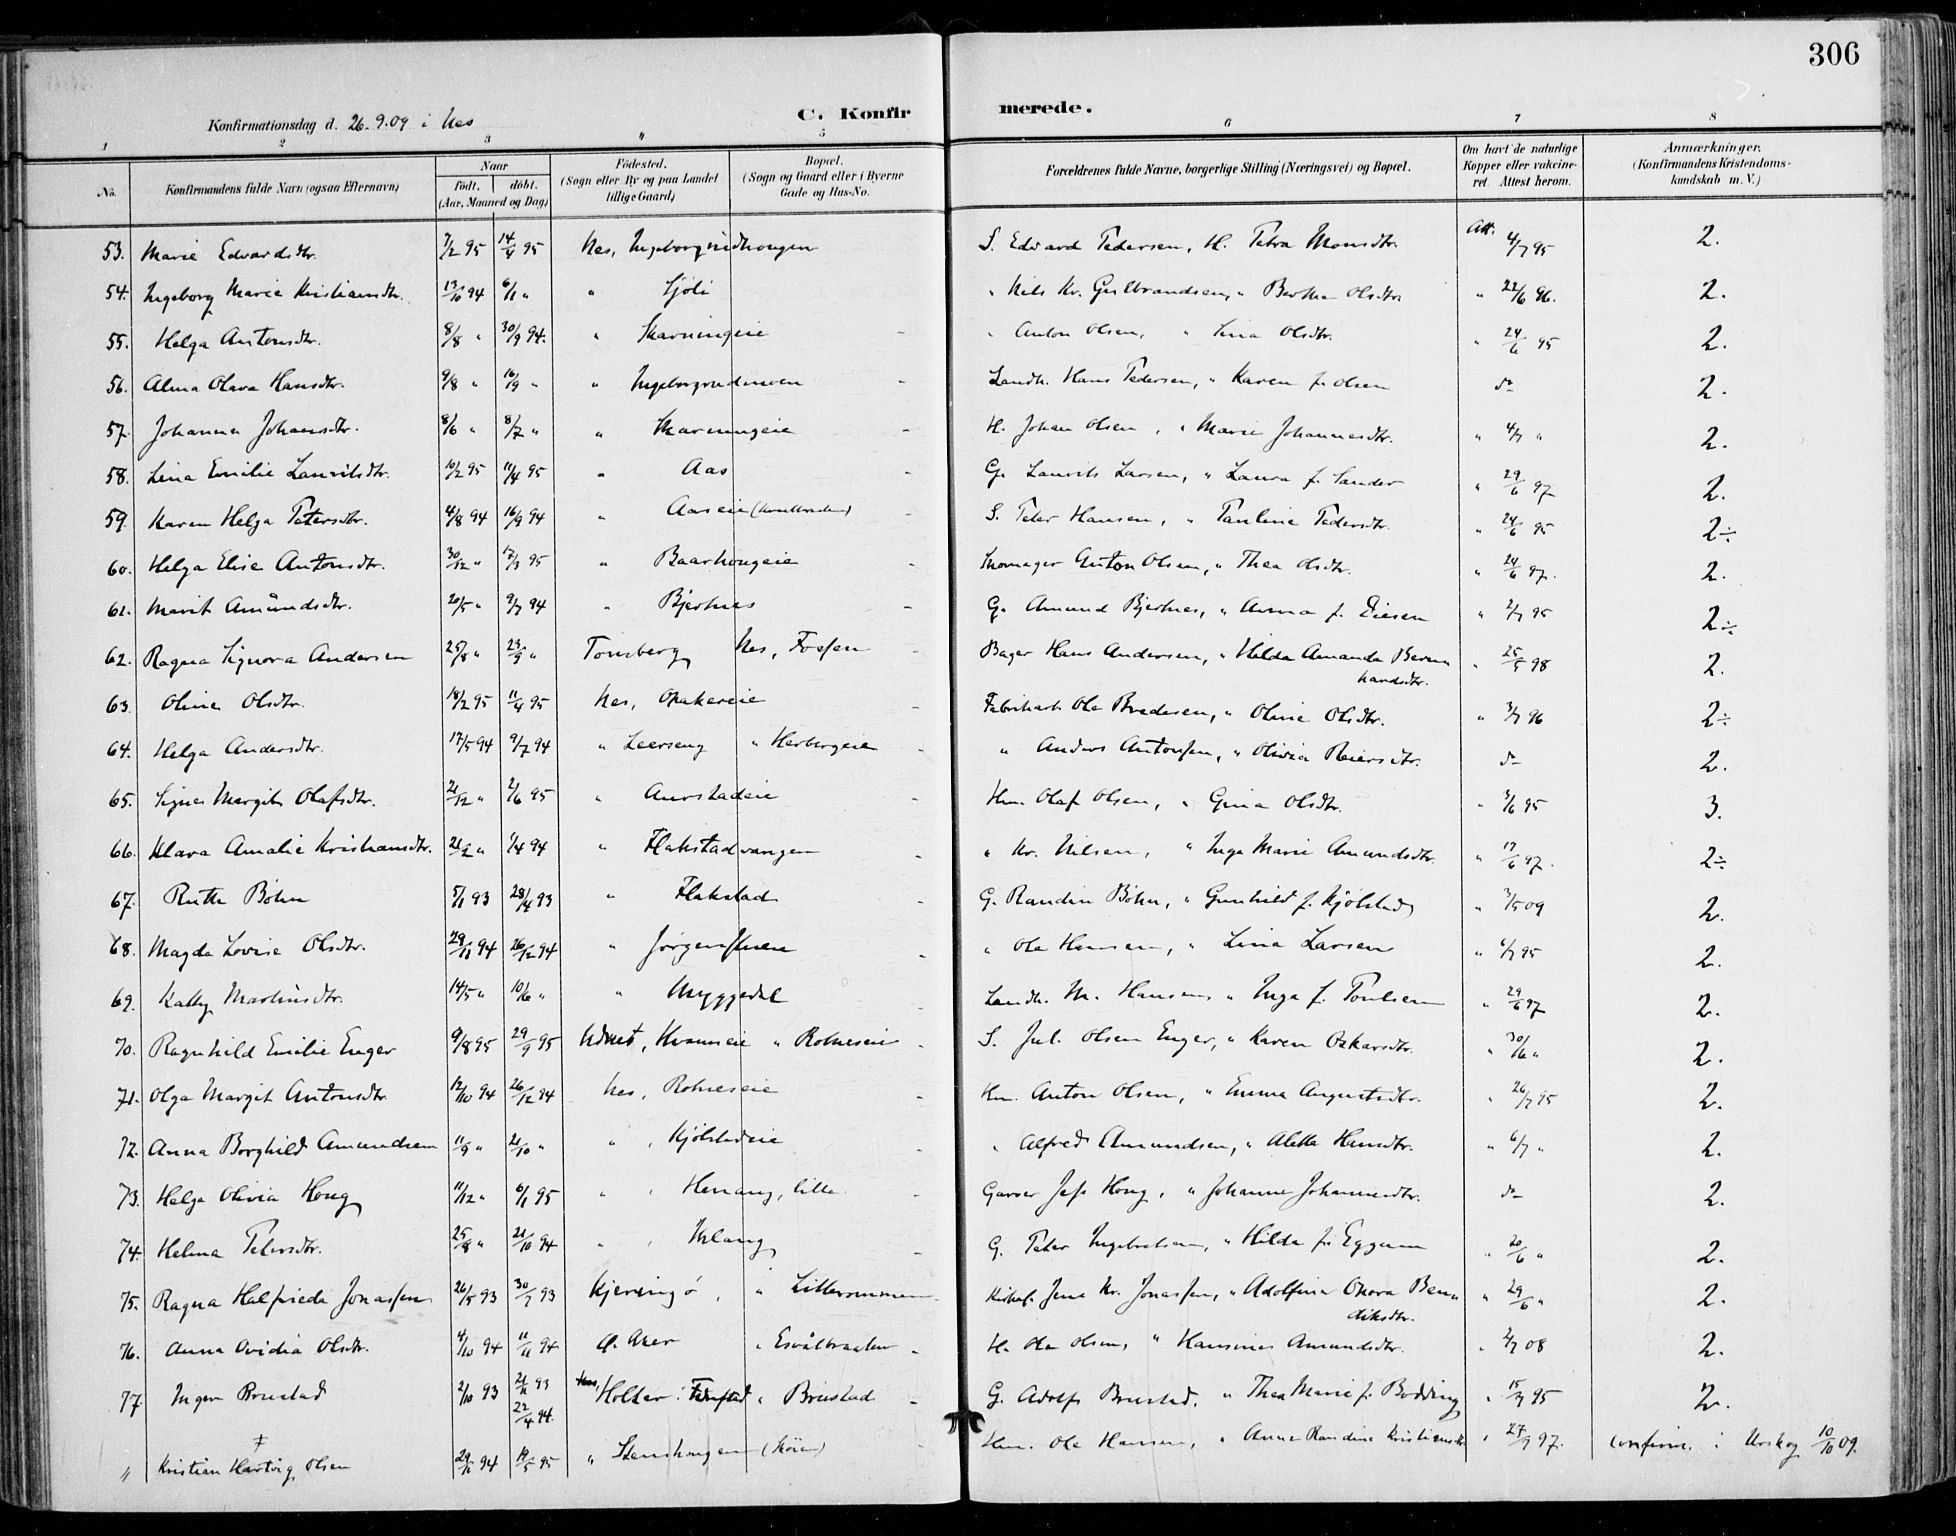 306
Konfirmationsdag d. 26.9.09 i Nes
C. Konfirmerede.
1 2 3 " 5 6 7 8
No. Konfirmandens fulde Navn (ogsaa Efternavn) Naar født. døbt. (Aar, Maaned og Dag) Fødested. (Sogn eller By og paa Landet tillige Gaard) Bopæl. (Sogn og Gaard eller i Byerne Gade og Hus-No. Forældrenes fulde Navne, borgerlige Stilling (Næringsvei) og Bopæl. Om havt de naturlige Kopper eller vakcineret. Attest herom. Anmærkninger. (Konfirmandens Kristendomskundskab m. V.)
53. Marie Edvardsdtr. 7/2 95 14/4 95 Nes, Ingeborgrudhougen S. Edvard Pedersen, H. Petra Monsdtr. Att. 4/7 95 2.
54. Ingeborg Marie Kristiansdtr. 13/10 94 6/1 " " Sjøli " Nils Kr. Gulbrandsen, " Berthe Olsdtr. " 22/6 96. 2.
55. Helga Antonsdtr. 8/8 " 30/9 94. " Skavningeie - " Anton Olsen, " Lina Olsdtr. " 24/6 95 2.
56. Alma Olava Hansdtr. 9/8 " 16/9 " " Ingeborgrudmoen - Landh. Hans Pedersen, " Karen f. Olsen do 2.
57. Johanna Johansdtr. 8/6 " 8/7 " " Skavningeie - H. Johan Olsen, " Marie Johannesdtr. " 4/7 " 2.
58. Lina Emilie Lauritsdtr. 10/2 95 11/4 95 " Aas - G. Laurits Larsen, " Laura f. Sander " 29/6 97 2.
59. Karen Helga Petersdtr. 4/8 94 16/9 94 " Aaseie - S. Peter Hansen, " Pauline Pedersdtr. " 24/6 95 2÷
60. Helga Elise Antonsdtr. 30/12 " 17/3 95 " Baarhougeie - Skomager Anton Olsen, " Thea Olsdtr. " 24/6 97. 2.
61. Marit Amundsdtr. 20/5 " 9/7 94 " Bjerknes - G. Amund Bjerknes, " Anna f. Diesen " 2/7 95 2÷
62. Ragna Signora Andersen 25/8 " 23/9 " Tønsberg Nes, Fossen - Bager Hans Andersen, " Hilda Amanda Bernhardsdtr. " 25/5 98 2.
63. Olina Olsdtr. 18/2 95 11/4 95 Nes, Opakereie - Fabrikarb. Ole Bredesen, " Oline Olsdtr. " 3/7 96 2÷
64. Helga Andersdtr. 17/5 94 9/7 94 " Leerseng " Herbergeie - " Anders Antonsen, " Olivia Reiersdtr. do 2.
65. Signe Margit Olafsdtr. 21/12 " 2/6 95 " Aurstadeie - Hm. Olaf Olsen, " Gina Olsdtr. " 3/6 95 3.
66. Klara Amalie Kristiansdtr. 21/2 " 1/4 94 " Flakstadvangen - " Kr. Nilsen, " Inga Marie Amundsdtr. " 17/6 97. 2÷
67. Ruth Bøhn 5/1 93 28/4 93 " Flakstad - G. Randin Bøhn, " Gunhild f. Kjølstad " 3/5 09 2.
68. Magda Lovise Olsdtr. 29/11 94 26/12 94 " - " Ole Hansen, " Lina Larsen " 6/7 95 2.
69. Kathy Martinsdtr. 14/5 " 10/6 " " Myggedal - Landh. M. Hansen " Inga f. Poulsen " 29/6 97 2.
70. Ragnhild Emilie Enger 9/8 95 29/9 95 Udnes, " Rolneseie - S. Jul. Olsen Enger, " Karen Oskarsdtr. " 30/6 " 2.
71. Olga Margit Antonsdtr. 12/10 94 26/12 94 Nes, Rolneseie - Hm. Anton Olsen, " Emma Augustsdtr. " 26/7 95 2.
72. Anna Borghild Amundsen 11/9 " 21/10 " " , Kjølstadeie - " Alfred Amundsen, " Aletta Hansdtr. " 6/7 " 2.
73. Helga Olivia Houg 11/12 " 6/1 95 " , Henang, lille - Garver Jeps Houg, " Johanne Johannesdtr. do 2.
74. Helma Petersdtr. 25/8 " 21/10 94 " , Uslang - G. Peter Ingebretsen, " Hilda f. Eggum " 20/6 " 2.
75. Ragna Halfrida Jonassen 26/5 93 30/7 93 Kjeringø, " Lillerommen Jens Kr. Jonassen, " Adolfina Onora Bendiksdtr. " 29/6 " 2.
76. Anna Ovidia Olsdtr. 4/10 94 11/11 94 Ø. Aker " Esvålbraaten - H. Ole Olsen, " Hansine Amundsdtr. " 2/7 08 2.
77. Inger Brustad 2/10 93 21/11 93 22/4 94. Holter " Brustad - G. Adolf Brustad, " Thea Marie f. Bodding " 15/7 95 2.
" Kristian Hartvig Olsen 29/11 94 19/5 95 " Stenshougen - Hm. Ole Hansen, " Anne Randine Kristiansdtr. " 27/7 97. confirm. i Urskog 10/10 09.